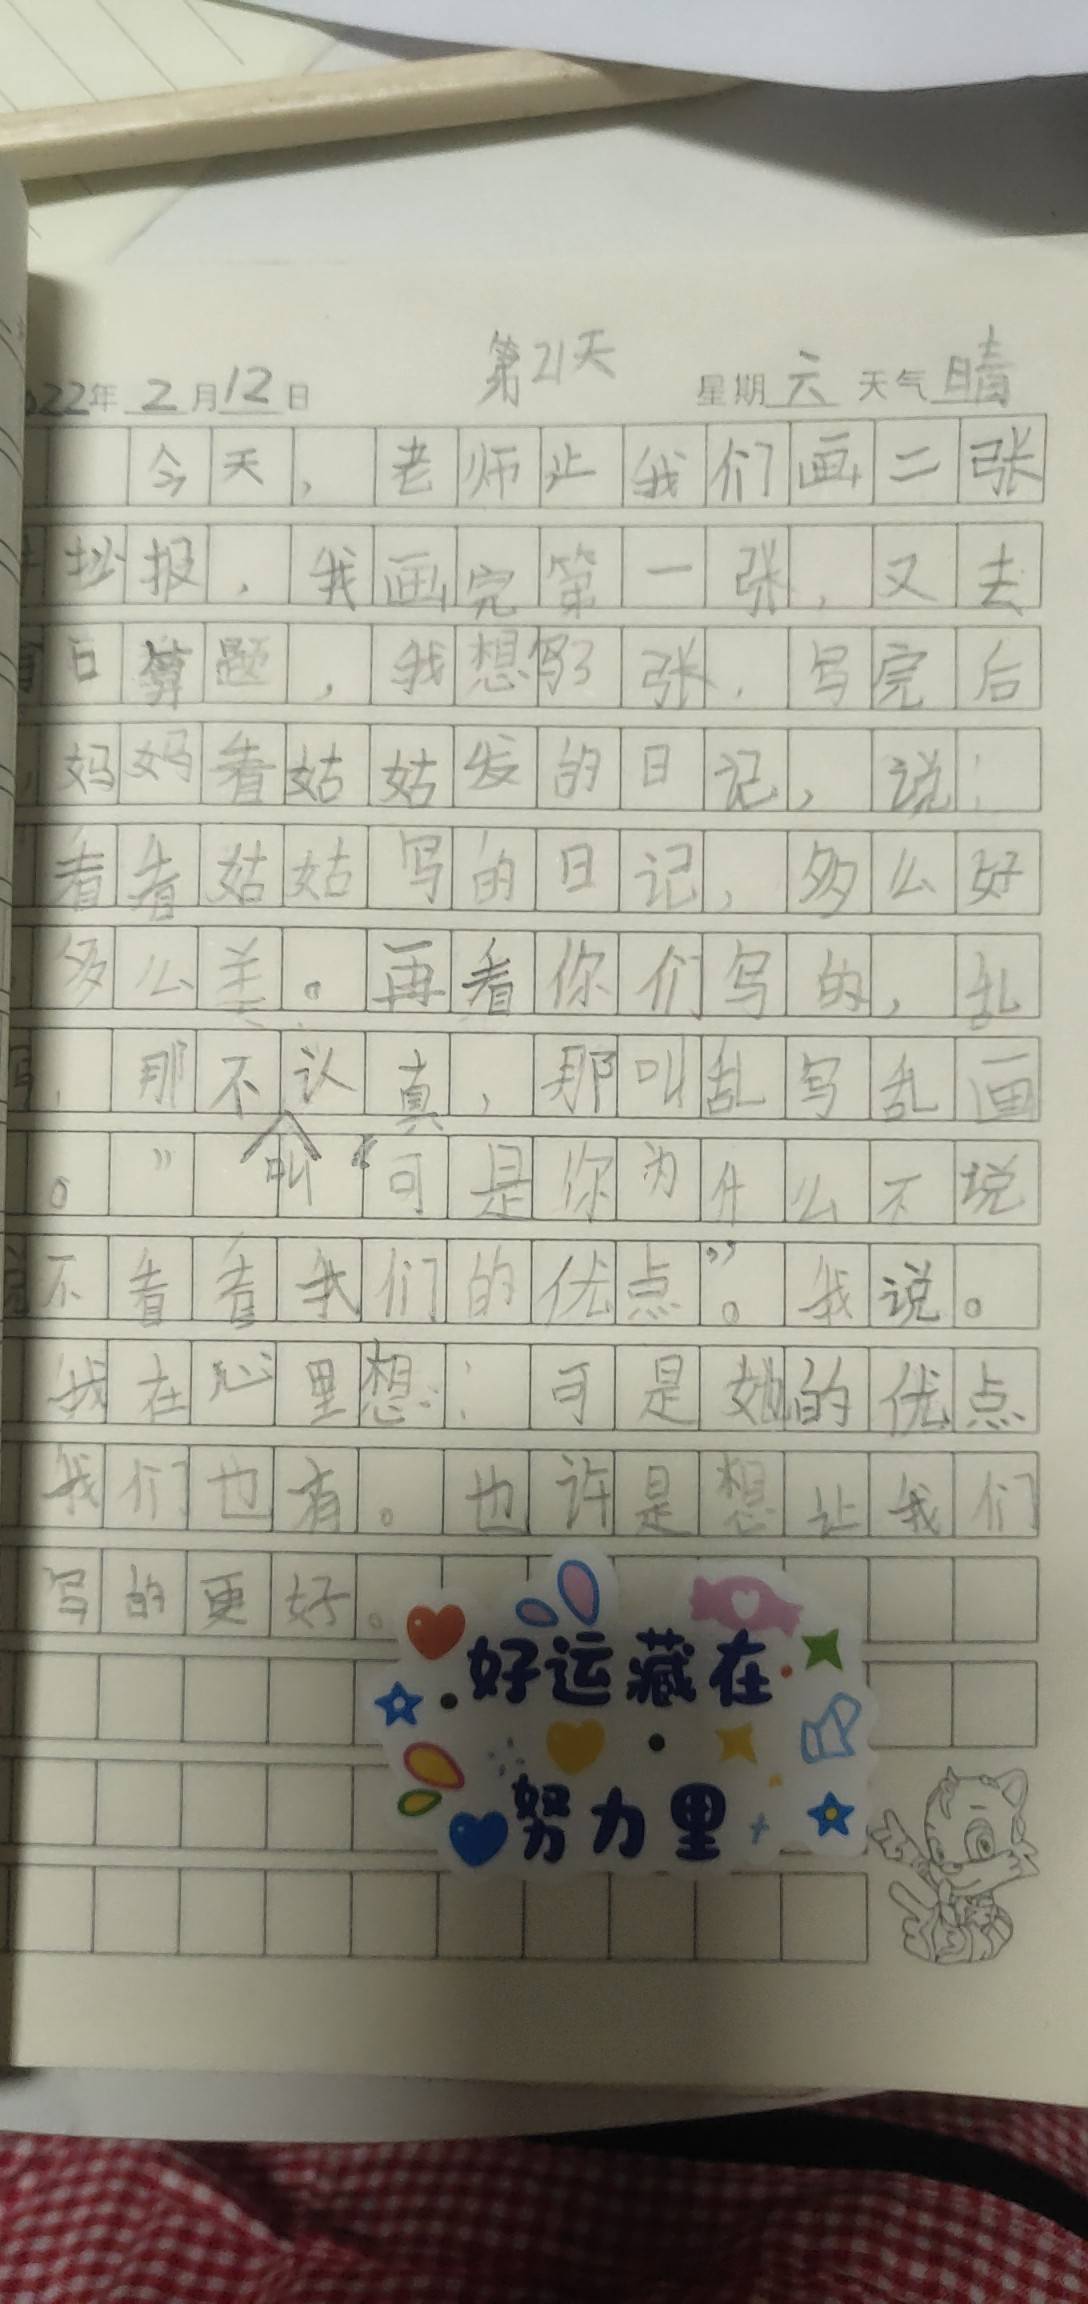 第21天
022年2月12日 星期六 天气晴
今天，老师让我们画二张
抄报，我画完第一张，又去
口算题，我想写了张，写完后
，妈妈看姑姑发的日记，说：
看看姑姑写的日记，多么好
多么美。再看你们写的，乱
写，那不叫认真，那叫乱写乱画
。”“可是你为什么不说
说不看看我们的优点”。我说。
我在心里想：可是她的优点
我们也有。也许是想让我们
写的更好。
好运藏在
努力里